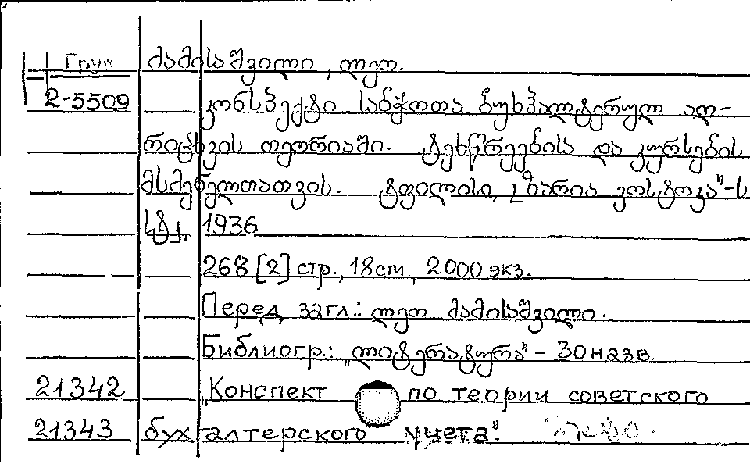 Груз მამისაშვილი, ლეო.
2-5509 კონსპექტი საბჭოთა ბუხჰალტერულ აღ-
რიცხვის თეორიაში. ტეხნიკუმების და კურსების
მსმენელთათვის. ტფილისი, „ზარია ვოსტოკა"-ს
სტ., 1936
268 [2] стр., 18см, 2000 экз.
Перед загл.: ლეო მამისაშვილი.
Библиогр.: „ლიტერატურა" - 30 назв.
21342 „Конспект по теории советского
21343 бухалтерского учета".